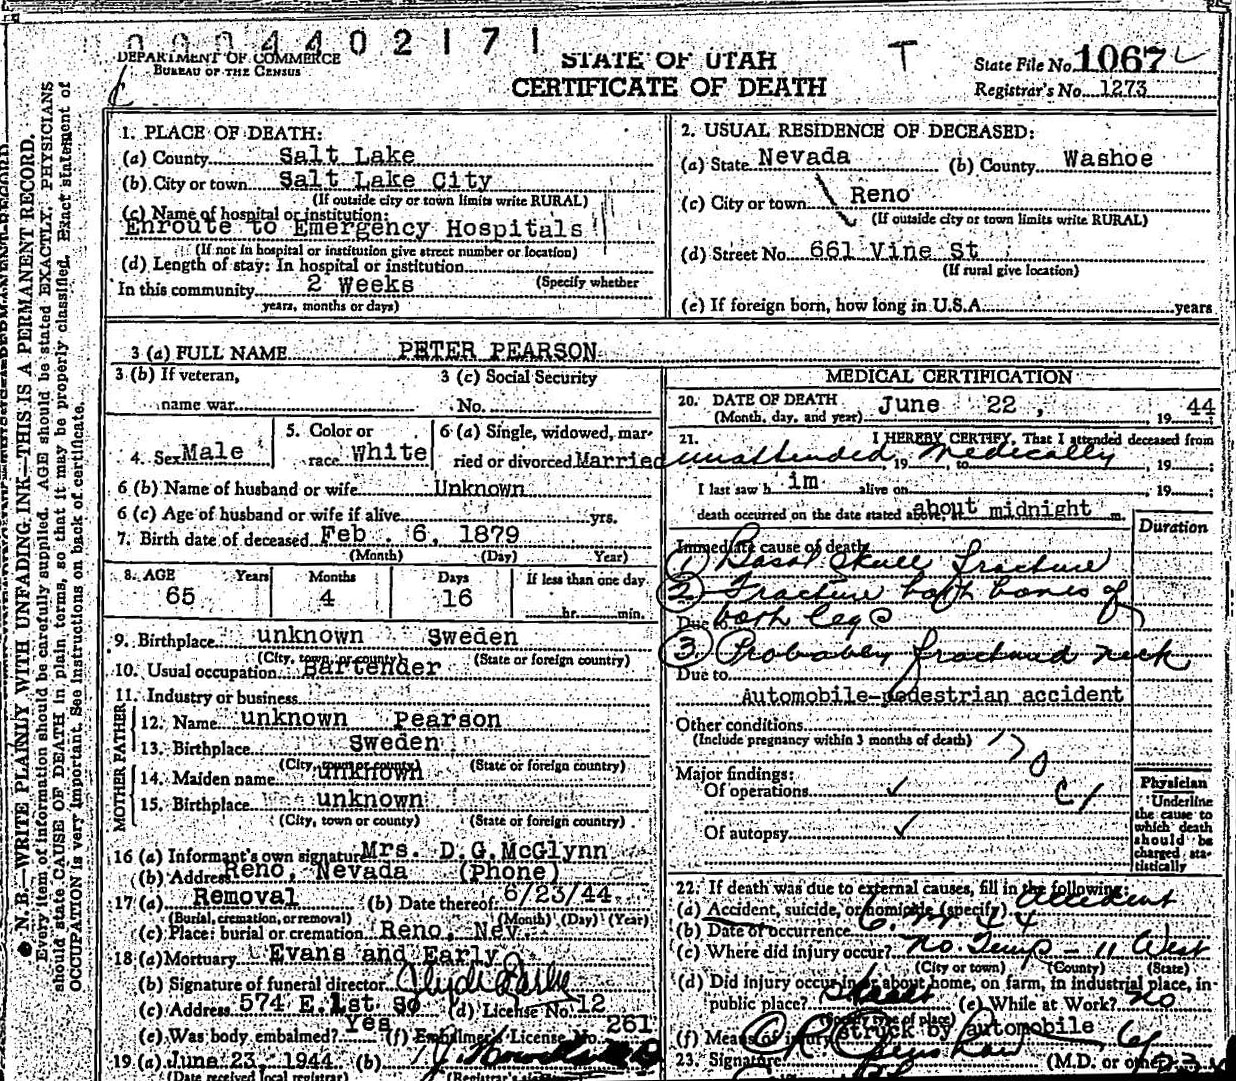 0004402171
DEPARTMENT OF COMMERCE
BUREAU OF THE CENSUS
STATE OF UTAH
CERTIFICATE OF DEATH
T
State File No. 1067
Registrar's No. 1273
N. B.—WRITE PLAINLY WITH UNFADING INK—THIS IS A PERMANENT RECORD.
Every item of information should be carefully supplied. AGE should be stated EXACTLY. PHYSICIANS
should state CAUSE OF DEATH in plain terms, so that it may be properly classified. Exact statement of
OCCUPATION is very important. See instructions on back of certificate.
1. PLACE OF DEATH:
(a) County Salt Lake
(b) City or town Salt Lake City
(If outside city or town limits write RURAL)
(c) Name of hospital or institution:
Enroute to Emergency Hospitals
(If not in hospital or institution give street number or location)
(d) Length of stay: In hospital or institution
(Specify whether
In this community 2 Weeks
years, months or days)
2. USUAL RESIDENCE OF DECEASED:
(a) State Nevada (b) County Washoe
(c) City or town Reno
(If outside city or town limits write RURAL)
(d) Street No. 661 Vine St
(If rural give location)
(e) If foreign born, how long in U.S.A. years
3 (a) FULL NAME PETER PEARSON
3 (b) If veteran,
name war
3 (c) Social Security
No.
4. Sex Male
5. Color or
race White
6 (a) Single, widowed, mar-
ried or divorced Married
6 (b) Name of husband or wife Unknown
6 (c) Age of husband or wife if alive yrs.
7. Birth date of deceased Feb. 6, 1879
(Month) (Day) Year)
8. AGE Years Months Days If less than one day
65 4 16 hr. min.
9. Birthplace unknown Sweden
(City, town or county) (State or foreign country)
10. Usual occupation Bartender
11. Industry or business
FATHER
12. Name unknown Pearson
13. Birthplace Sweden
(City, town or county) (State or foreign country)
MOTHER
14. Maiden name unknown
15. Birthplace unknown
(City, town or county) (State or foreign country)
16 (a) Informant's own signature Mrs. D.G.McGlynn
(b) Address Reno, Nevada (Phone)
17 (a) Removal (b) Date thereof 6/23/44
(Burial, cremation, or removal) (Month) (Day) (Year)
(c) Place: burial or cremation Reno, Nev.
18 (a) Mortuary Evans and Early
(b) Signature of funeral director
(c) Address 574 E. 1st So (d) License No. 12
(e) Was body embalmed? Yes (f) Embalmer License No. 261
19 (a) June 23, 1944 (b)
(Date received local registrar) (Registrar's
MEDICAL CERTIFICATION
20. DATE OF DEATH
(Month, day, and year) June 22, 19 44
21. I HEREBY CERTIFY, That I attended deceased from
unattended, 19 Medically to , 19 ;
I last saw h im alive on , 19 ;
death occurred on the date stated above, at about midnight m.
Duration
Immediate cause of death
1) Basal Skull fracture
2 Fracture both bones of
Due to both legs
3 Probably fractured neck
Due to
Automobile-pedestrian accident
Other conditions
(Include pregnancy within 3 months of death)
170
C1
Major findings:
Of operations ✓
Of autopsy ✓
Physician
Underline
the cause to
which death
should be
charged sta-
tistically
22. If death was due to external causes, fill in the following:
(a) Accident, suicide, or homicide (specify) accident
(b) Date of occurrence
(c) Where did injury occur? No. Temp - 11 West
(City or town) (County) (State)
(d) Did injury occur in or about home, on farm, in industrial place, in-
public place? street (e) While at Work? no
(Specify type of place)
(f) Means of injury Struck by automobile
23. Signature (M.D. or other